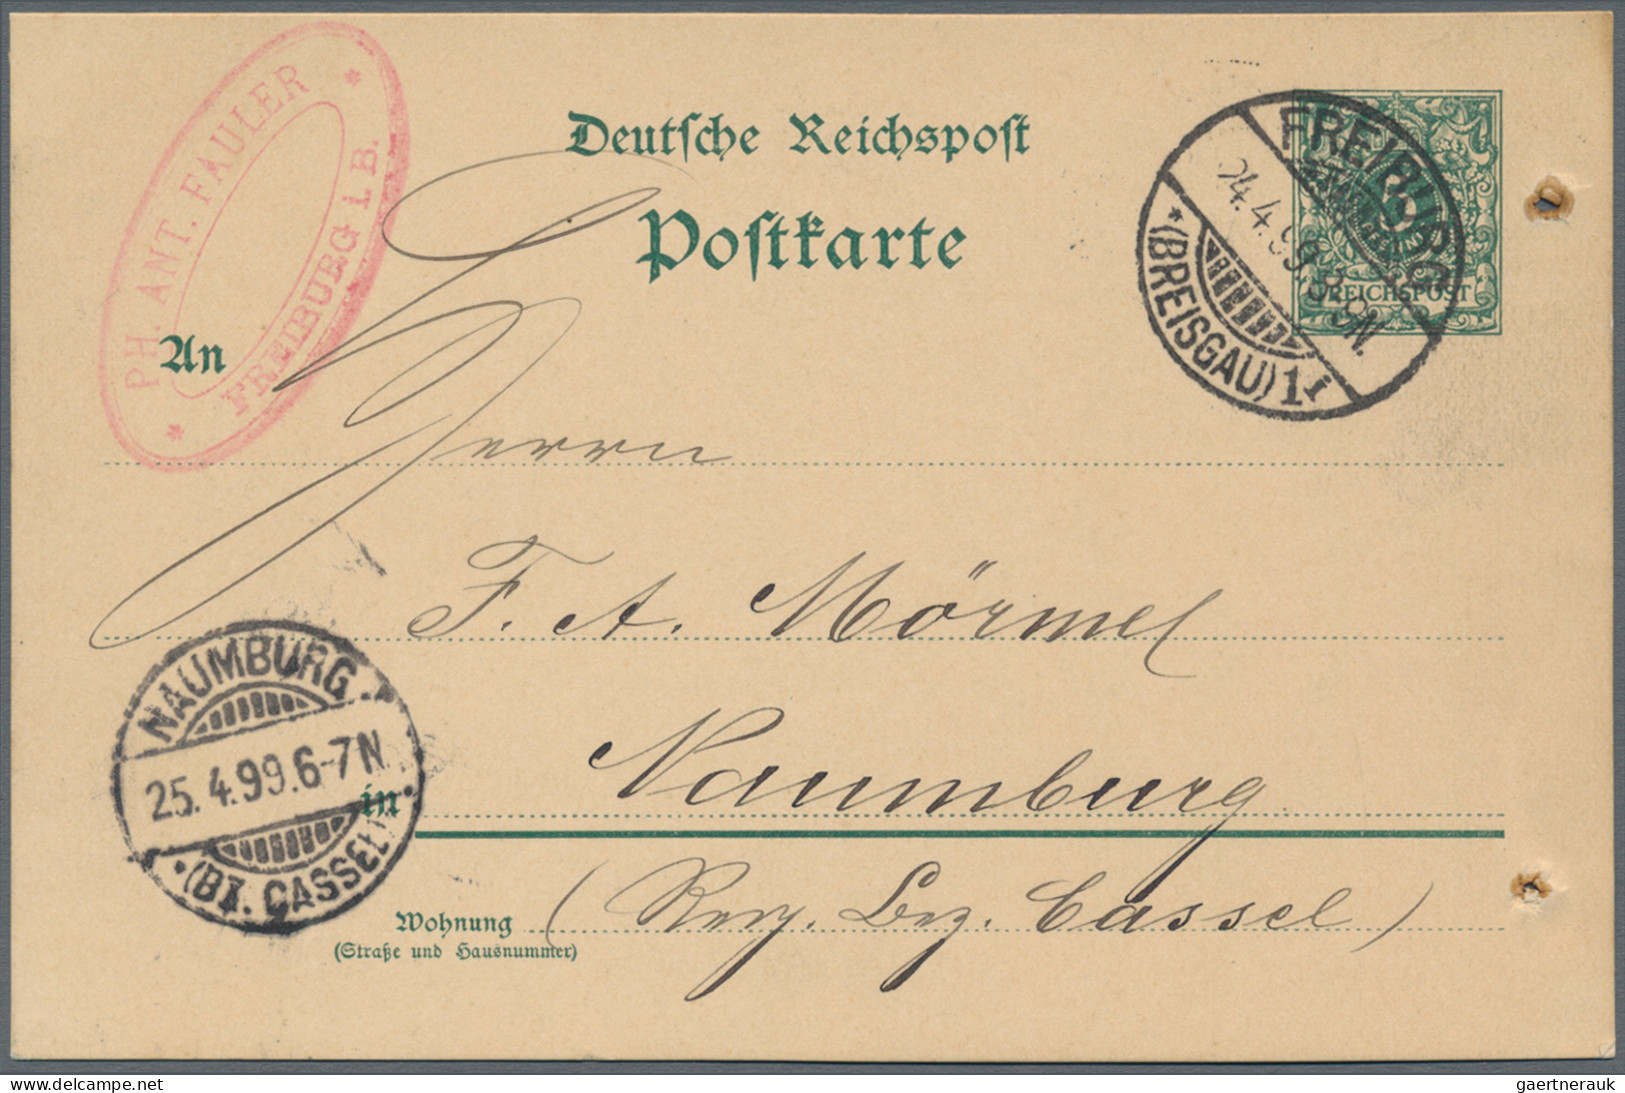 PH. ANT. FAULER
FREIBURG i. B.
Deutsche Reichspost
Postkarte
FREIBURG
24.4.99.8-9N.
*(BREISGAU) 1
REICHSPOST
An
Herrn
F. A. Mörmel
NAUMBURG
25.4.99.6-7N.
*(BZ. CASSEL)*
in
Naumburg
Wohnung
(Reg. Bez. Cassel)
(Straße und Hausnummer)
www.delcampe.net
gaertnerauk